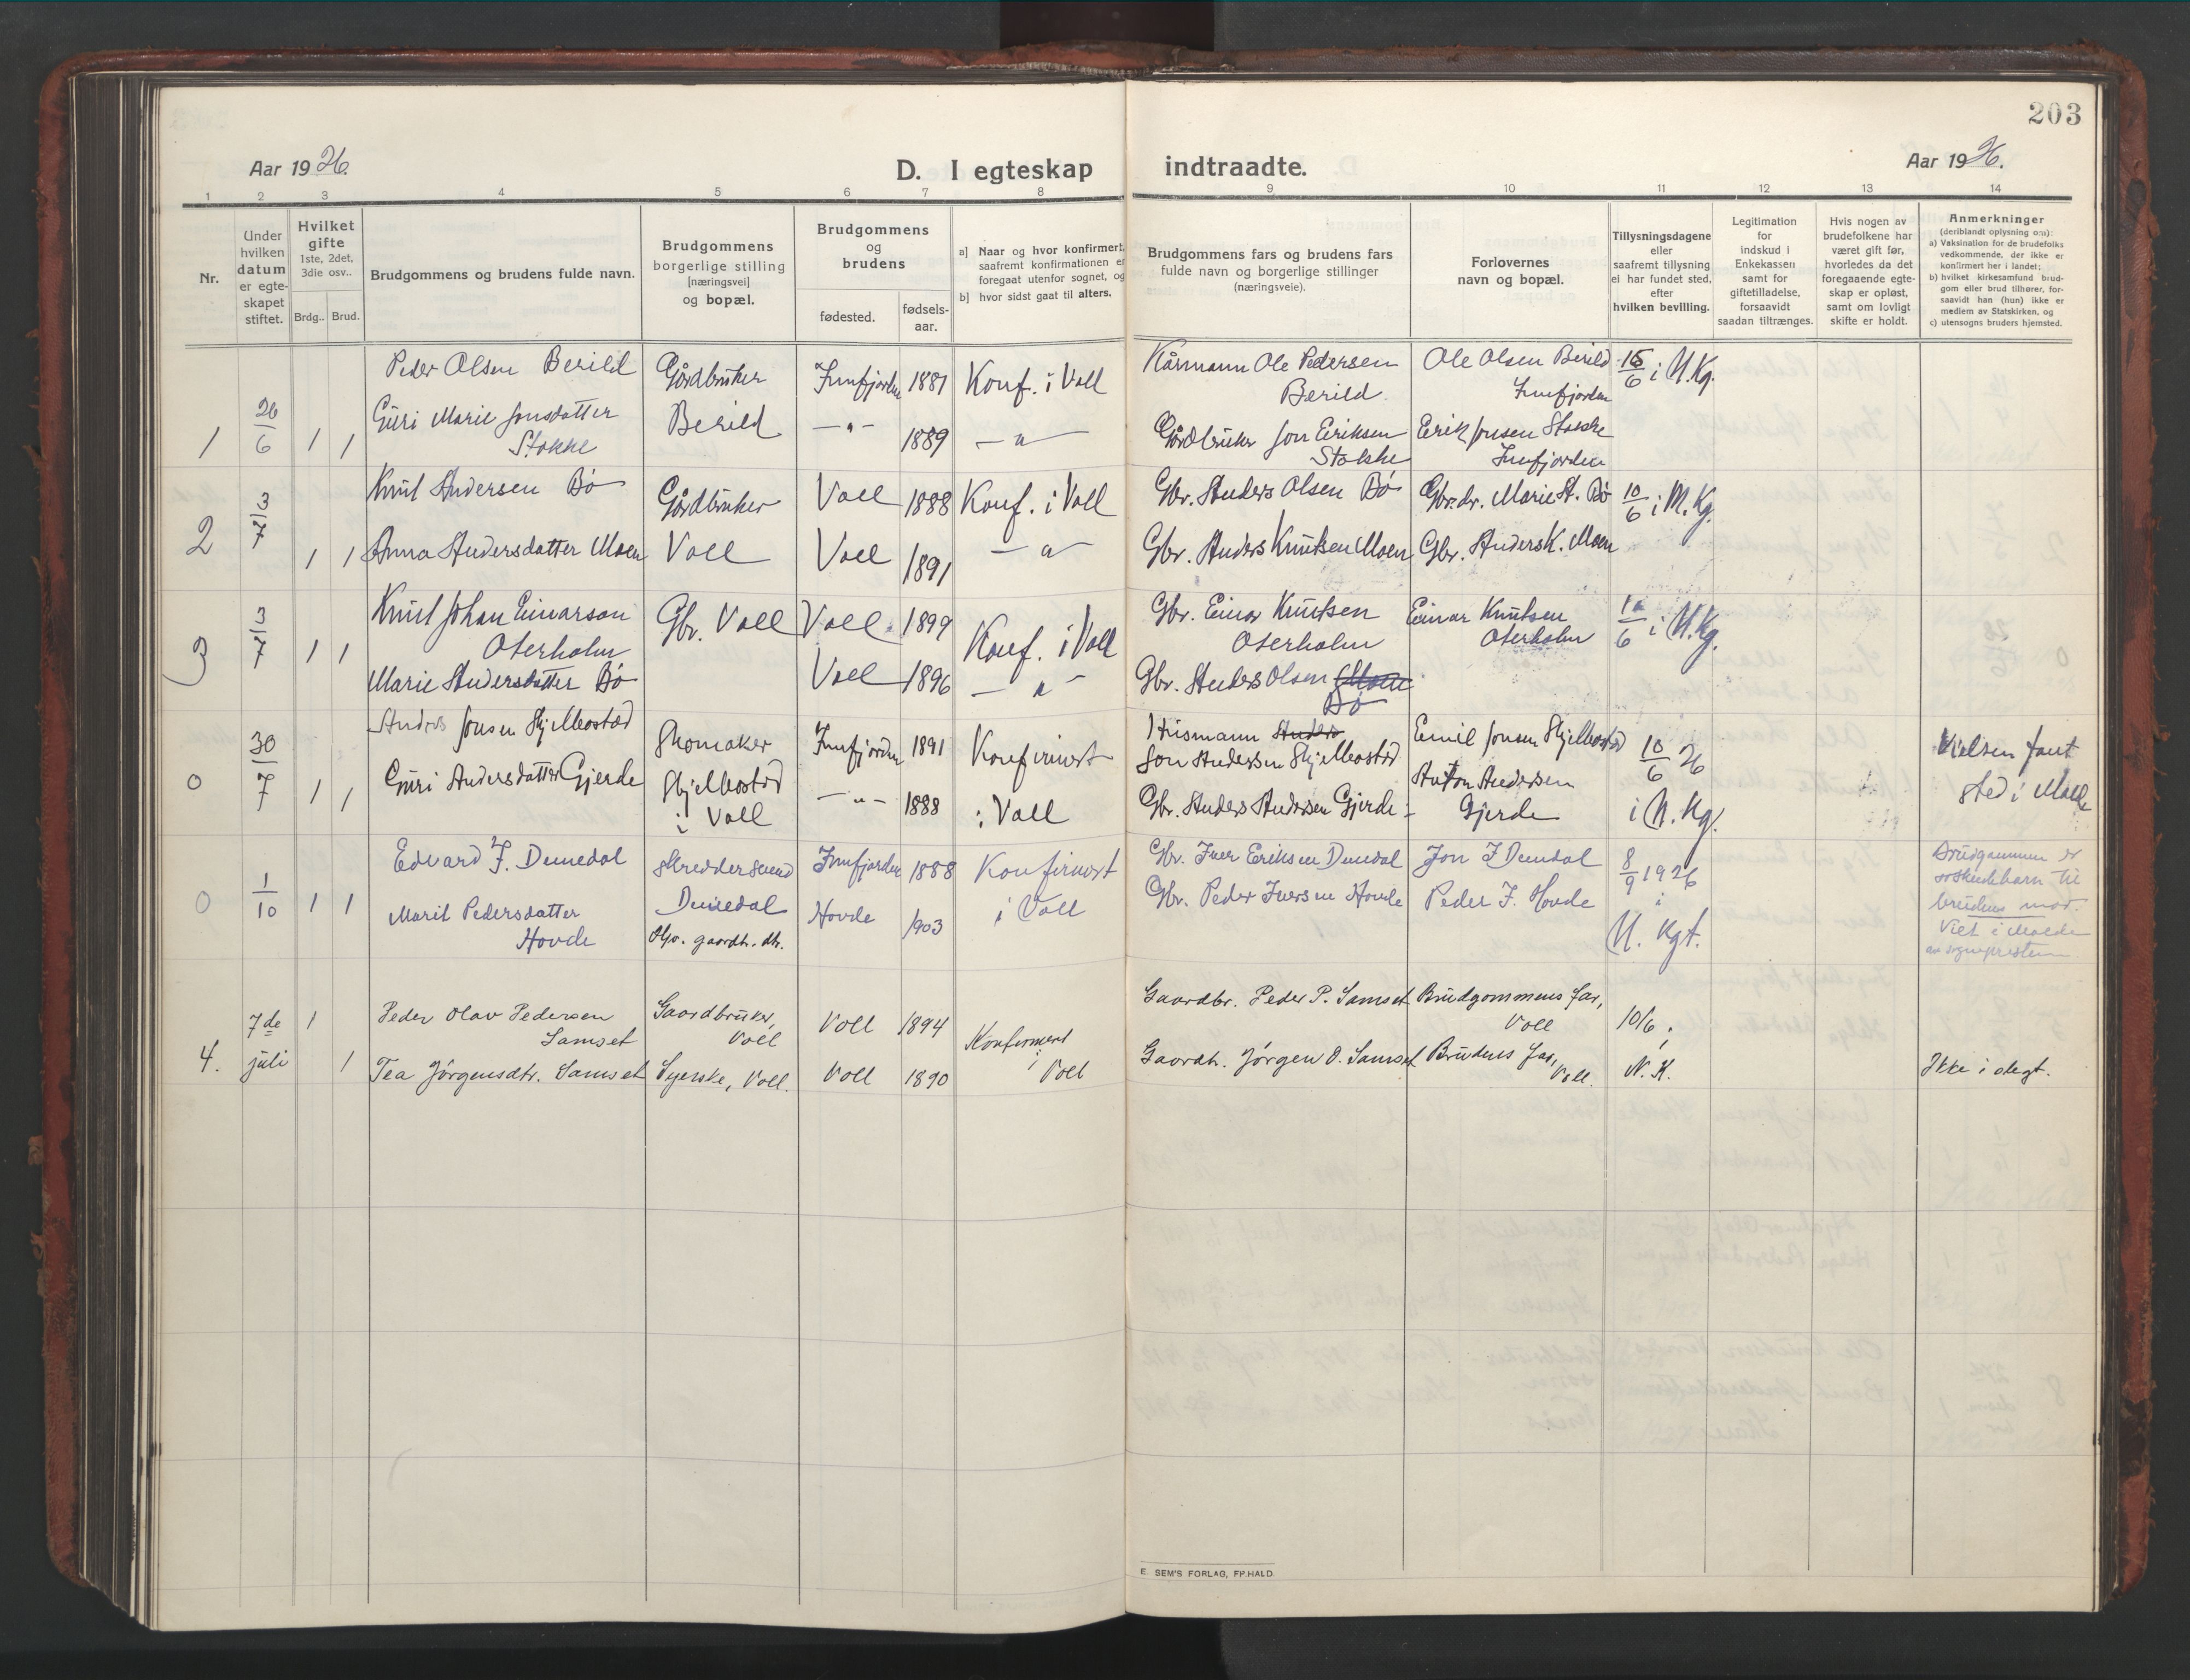 203
Aar 1926.
D. I egteskap indtraadte.
Aar 1926.
1 2 3 4 5 6 7 8 9 10 11 12 13 14
Nr.
Under
hvilken
datum
er egte-
skapet
stiftet.
Hvilket
gifte
1ste, 2det,
3die osv..
Brdg.. Brud.
Brudgommens og brudens fulde navn.
Brudgommens
borgerlige stilling
[næringsvei]
og bopæl.
Brudgommens
og
brudens
fødested.
fødsels-
aar.
a] Naar og hvor konfirmert,
saafremt konfirmationen er
foregaat utenfor sognet, og
b] hvor sidst gaat til alters.
Brudgommens fars og brudens fars
fulde navn og borgerlige stillinger
(næringsveie).
Forlovernes
navn og bopæl.
Tillysningsdagene
eller
saafremt tillysning
ei har fundet sted,
efter
hvilken bevilling.
Legitimation
for
indskud i
Enkekassen
samt for
giftetilladelse,
forsaavidt
saadan tiltrænges.
Hvis nogen av
brudefolkene har
været gift før,
hvorledes da det
foregaaende egte-
skap er opløst,
samt om lovligt
skifte er holdt.
Anmerkninger
(deriblandt oplysning om):
a) Vaksination for de brudefolks
vedkommende, der ikke er
konfirmert her i landet;
b) hvilket kirkesamfund brud-
gom eller brud tilhører, for-
saavidt han (hun) ikke er
medlem av Statskirken, og
c) utensogns bruders hjemsted.
1 26/6 1 1
Peder Olsen Berild
Guri Marie Jonsdatter
Stokke
Gårdbruker
Berild
Innfjorden 1881
—"— 1889
Konf. i Voll
—"—
Kårmann Ole Pedersen
Berild
Gårdbruker Jon Eriksen
Stokke
Ole Olsen Berild
Innfjorden
Erik Jonsen Stokke
Innfjorden
/6 i N. Kg.
2 3/7 1 1
Knut Andersen Bö
Anna Andersdatter Moen
Gårdbruker
Voll
Voll 1888
Voll 1891
Konf. i Voll
—"—
Gbr. Anders Olsen Bö
Gbr. Anders Knutsen Moen
Gbr. dr. Marie A. Bö
Gbr. Anders K. Moen
10/6 i N. Kg.
3 3/7 1 1
Knut Johan Einarson
Oterholm
Marie Andersdatter Bö
Gbr. Voll
Voll 1899
Voll 1896
Konf. i Voll
—"—
Gbr. Einar Knutsen
Oterholm
Gbr. Anders Olsen Moen
Bö
Einar Knutsen
Oterholm
10/6 i N. Kg.
0 30/7 1 1
Anders Jonsen Skjelbostad
Guri Andersdatter Gjerde
Skomaker
Skjelbostad
i Voll
Innfjorden 1891
—"— 1888
Konfirmert
i Voll
Husmann Anders
Jon Andersen Skjelbostad
Gbr. Anders Andersen Gjerde
Emil Jonsen Skjelbostad
Anton Andersen
Gjerde
10/6 26
i N. Kg.
Vielsen fant
sted i Molde
0 1/10 1 1
Edvard I. Dunedal
Marit Pedersdatter
Hovde
Skreddersvend
Dunedal
gaardbr. dtr.
Innfjorden 1888
Hovde 1903
Konfirmert
i Voll
Gbr. Iver Eriksen Dunedal
Gbr. Peder Iversen Hovde
Jon I Dundal
Peder I. Hovde
8/9 1926
i
N. Kgt.
Brudgommen er
søskendebarn til
brudens mor.
Viet i Molde
av sogneprsten
4. 7de
juli 1 1
Peder Olav Pedersen
Samset
Tea Jørgensdtr. Samset
Gaardbruker,
Voll
Syerske, Voll.
Voll 1894
Voll 1890
Konfirmert
i
Voll
Gaardbr. Peder P. Samset
Gaardb. Jørgen O. Samset
Brudgommens far,
Voll
Brudens far,
Voll.
10/6 i
N. K.
Ikke i slegt.
E. SEM'S FORLAG, FR.HALD